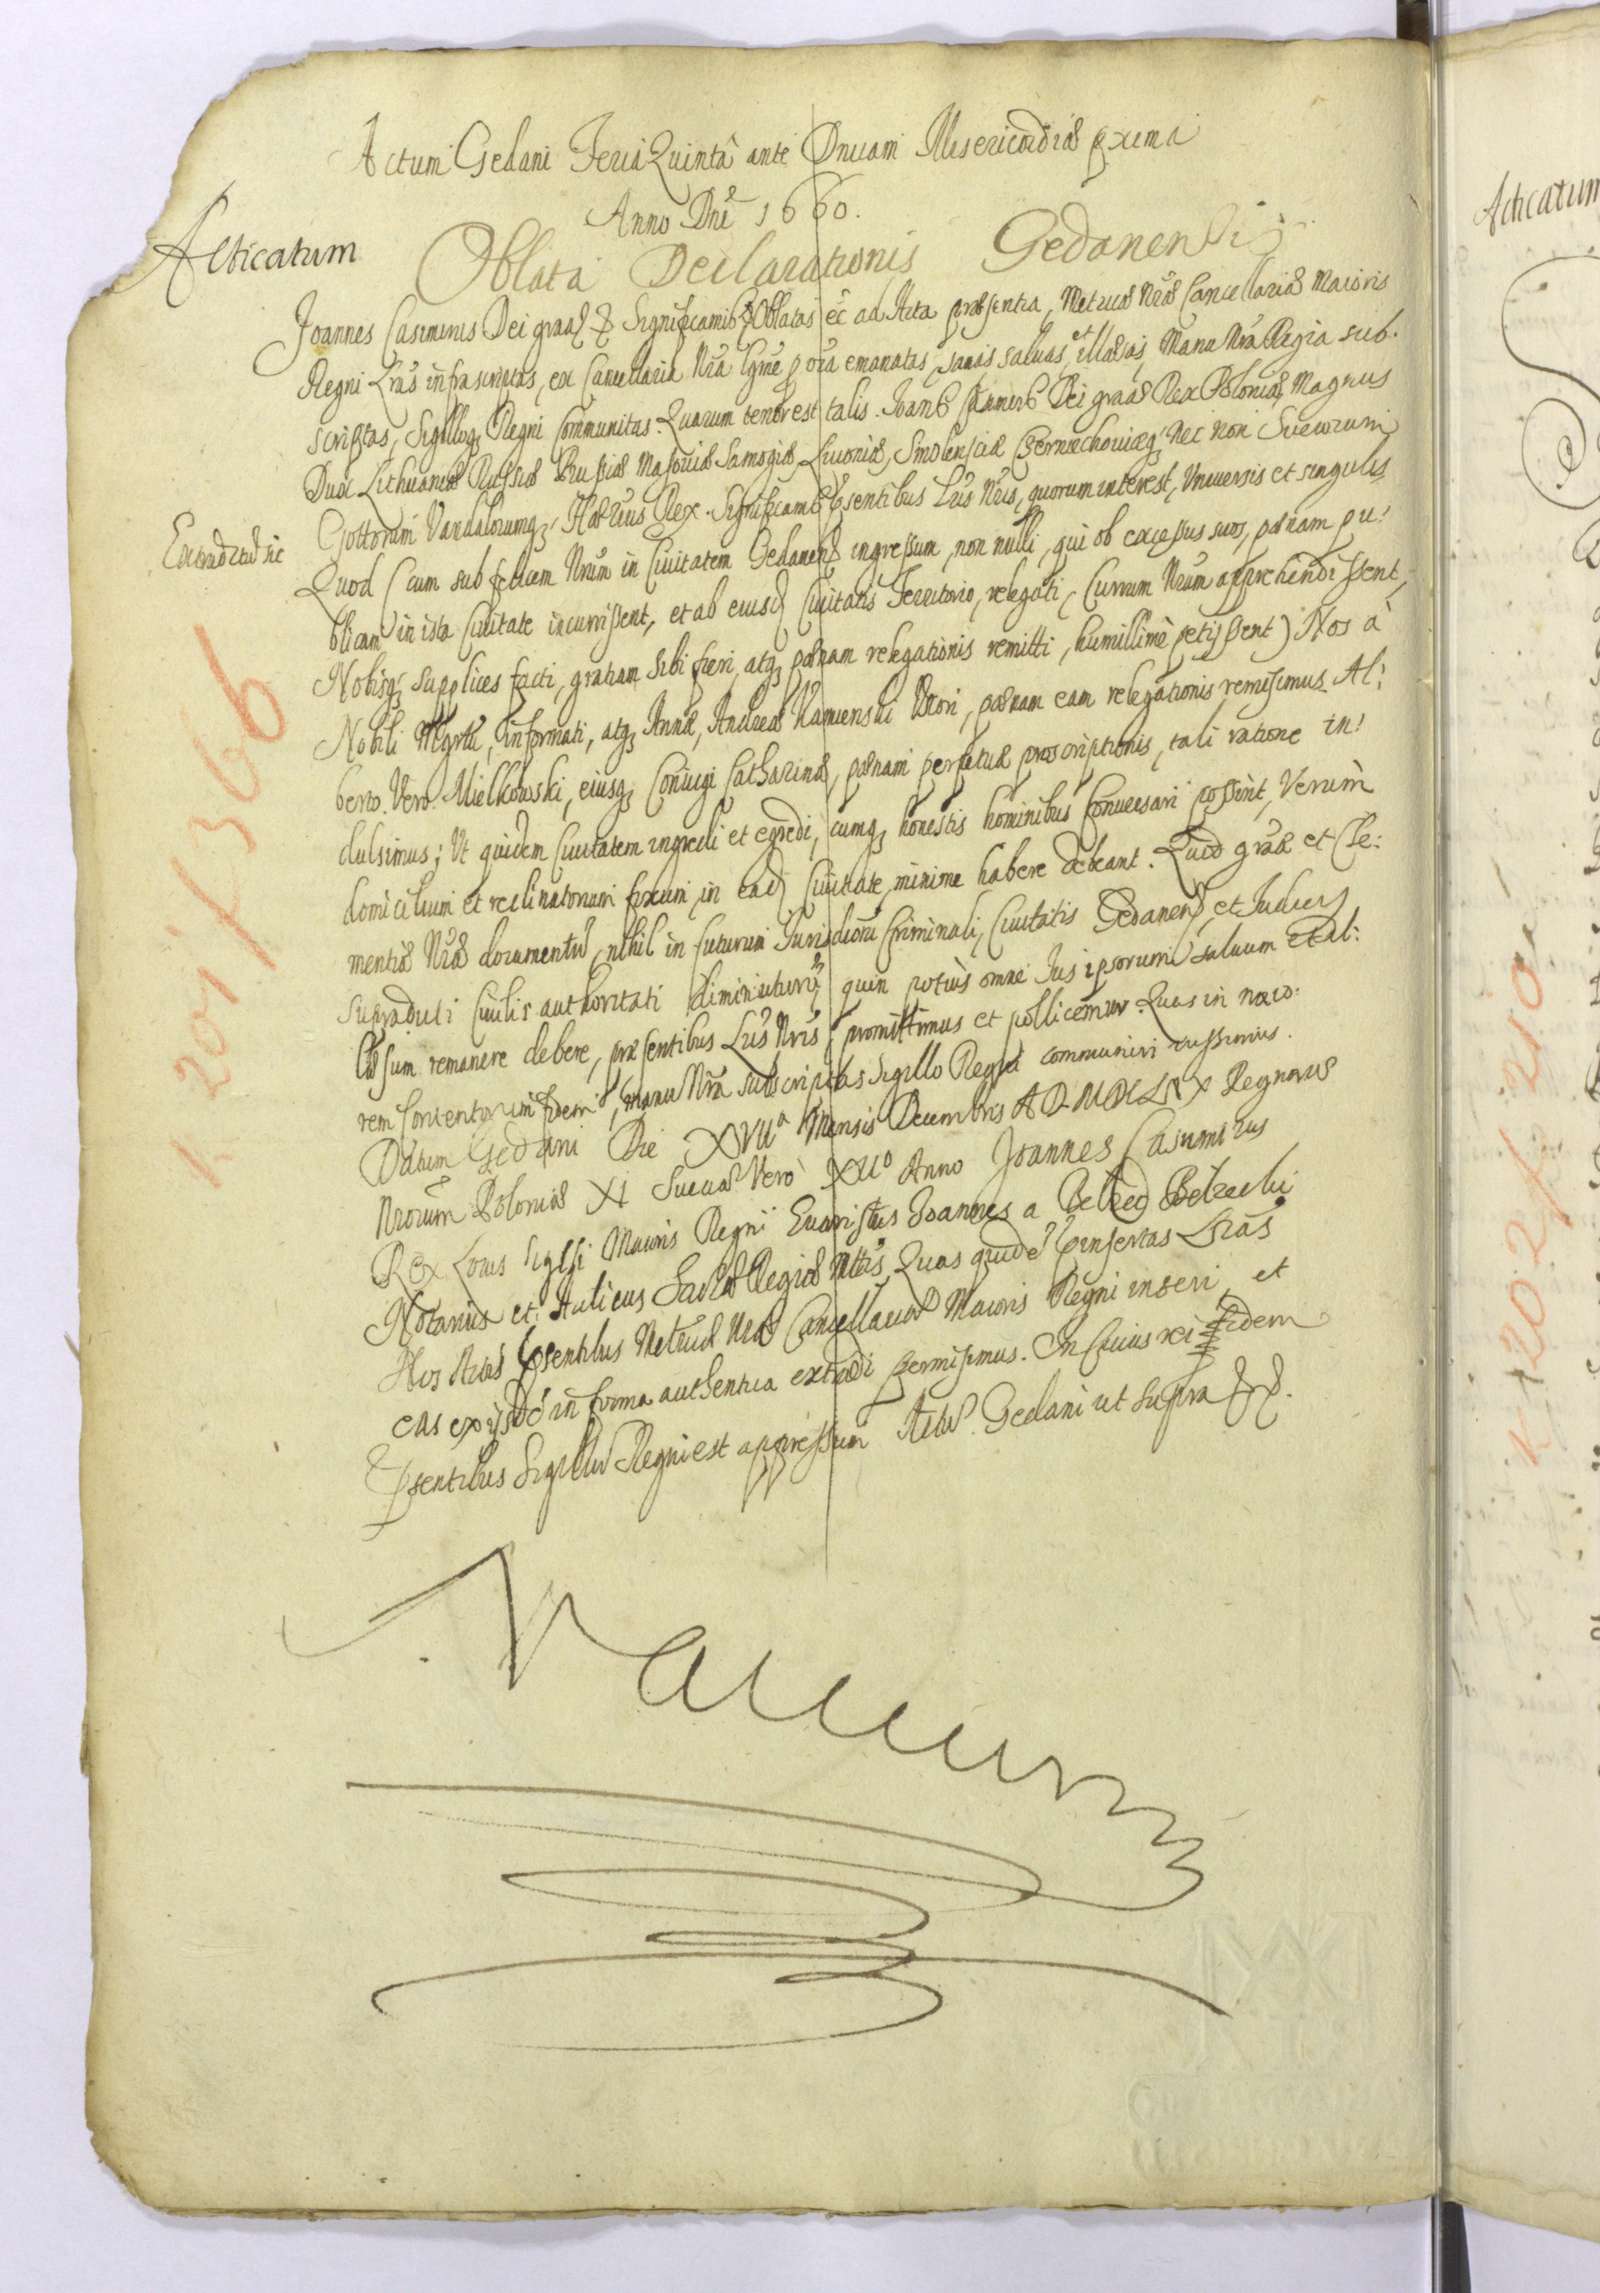 Actum Gedani Feria Quinta ante Dnicam Misericordiæ pxima
Anno Dni 1660.
Acticatum
Oblata Declarationis Gedanensis
Joannes Casimirus Dei graa & Significamus Oblatas eē ad Acta præsentia, Metrices Nræ Cancellariæ Maioris
Regni Lras infrascriptas, ex Cancellaria Nra emanatas, sanas saluas, et illæsas, Manu Nra Regia sub.
scriptas, Sigilloq Regni Communitas. Quarum tenor est talis. Joans Casimirs Dei graa Rex Poloniæ, Magnus
Dux Lithuaniæ Russiæ Prussiæ Masouiæ Samogiæ Liuoniæ, Smolensciæ Czerniechouiæq, Nec non Sueorum
Gottorum Vandalorumq, Hæreus Rex. Significams psentibus Lris Nris, quorum interest, Vniuersis et singulis
Extraditū sic
Quod (cum sub felicem Nrum in Ciuitatem Gedanen ingressum, non nulli, qui ob excessus suos, pænam pu:
blicam in ista Ciuitate incurrissent, et ab eiusd Ciuitatis Territorio, relegati, Currum Nrum apprehendissent,
Nobisq, supplices facti, gratiam sibi fieri, atq, pænam relegationis remitti, humillime petijssent) Nos à
Nobili Mgrtu, informati, atq, Annæ, Andreæ Kamienski Vxori, pænam eam relegationis remisimus. Al:
berto Vero Mielkowski, eiusq, Coniugi Catharinæ, pænam perpetuæ proscriptionis, tali ratione in:
dulsimus; Vt quidem Ciuitatem ingredi et egredi, cumq, honestis hominibus Conuersari possint, Verum
domicilium et reclinatorium fixum, in ead Ciuitate, minime habere debeant. Quod graæ et Cle:
mentiæ Nræ documentū, nihil in futurum Jurisdioni Criminali, Ciuitatis Gedanen et Judicij
supradicti Ciuilis authoritati diminuturū, quin potius omne Jus ipsorum saluum et il:
læsum remanere debere, præsentibus Lris Nris, promittimus et pollicemur. Quas in maio:
rem fidem, manu Nra subscriptas Sigillo Regni communiri iussimus.
Datum Gedani Die XVIIa Mensis Decembris AD. MDCLIX Regnorum
Nrorum Poloniæ XI Sueciæ Vero XIIo Anno Joannes Casimirus
Rex Locus Sigilli Maioris Regni Euaristus Joannes a Bełzec Bełzecki
Notarius et Aulicus Sacræ Regiæ Mttis, Quas quidē pinsertas Lras
Hos Nras psentibus Metrices Nræ Cancellariæ Maioris Regni inseri, et
eas ex ijsdē in forma authentica extradi permisimus. In Cuius rei fidem
psentibus Sigillū Regni est appressum Actū Gedani ut supra &&.
k 201 f 366
Acticatum
k 202 f 210